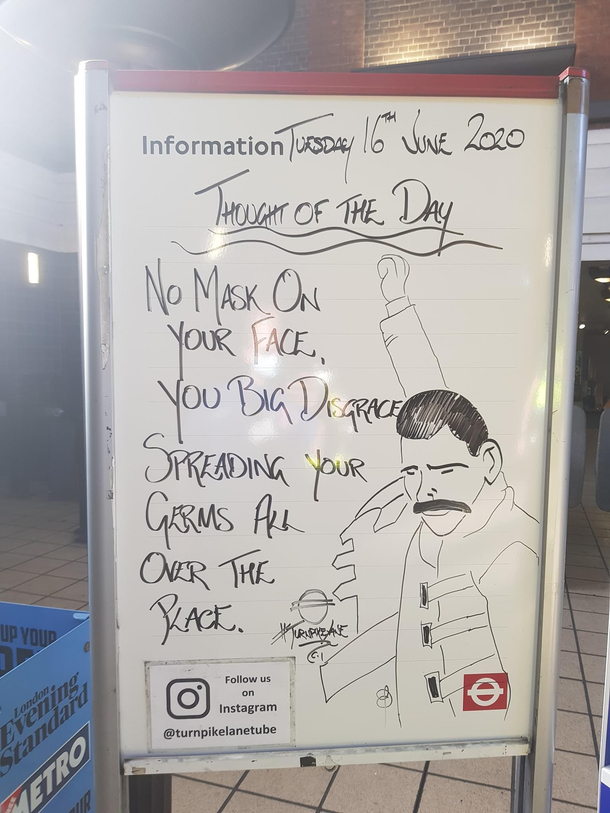 Information TUESDAY 16TH JUNE 2020
THOUGHT OF THE DAY
NO MASK ON
YOUR FACE,
YOU BIG DISGRACE
SPREADING YOUR
GERMS ALL
OVER THE
PLACE.
#TURNPIKELANE
Follow us
on
Instagram
@turnpikelanetube
UP YOUR
London
Evening
Standard
METRO